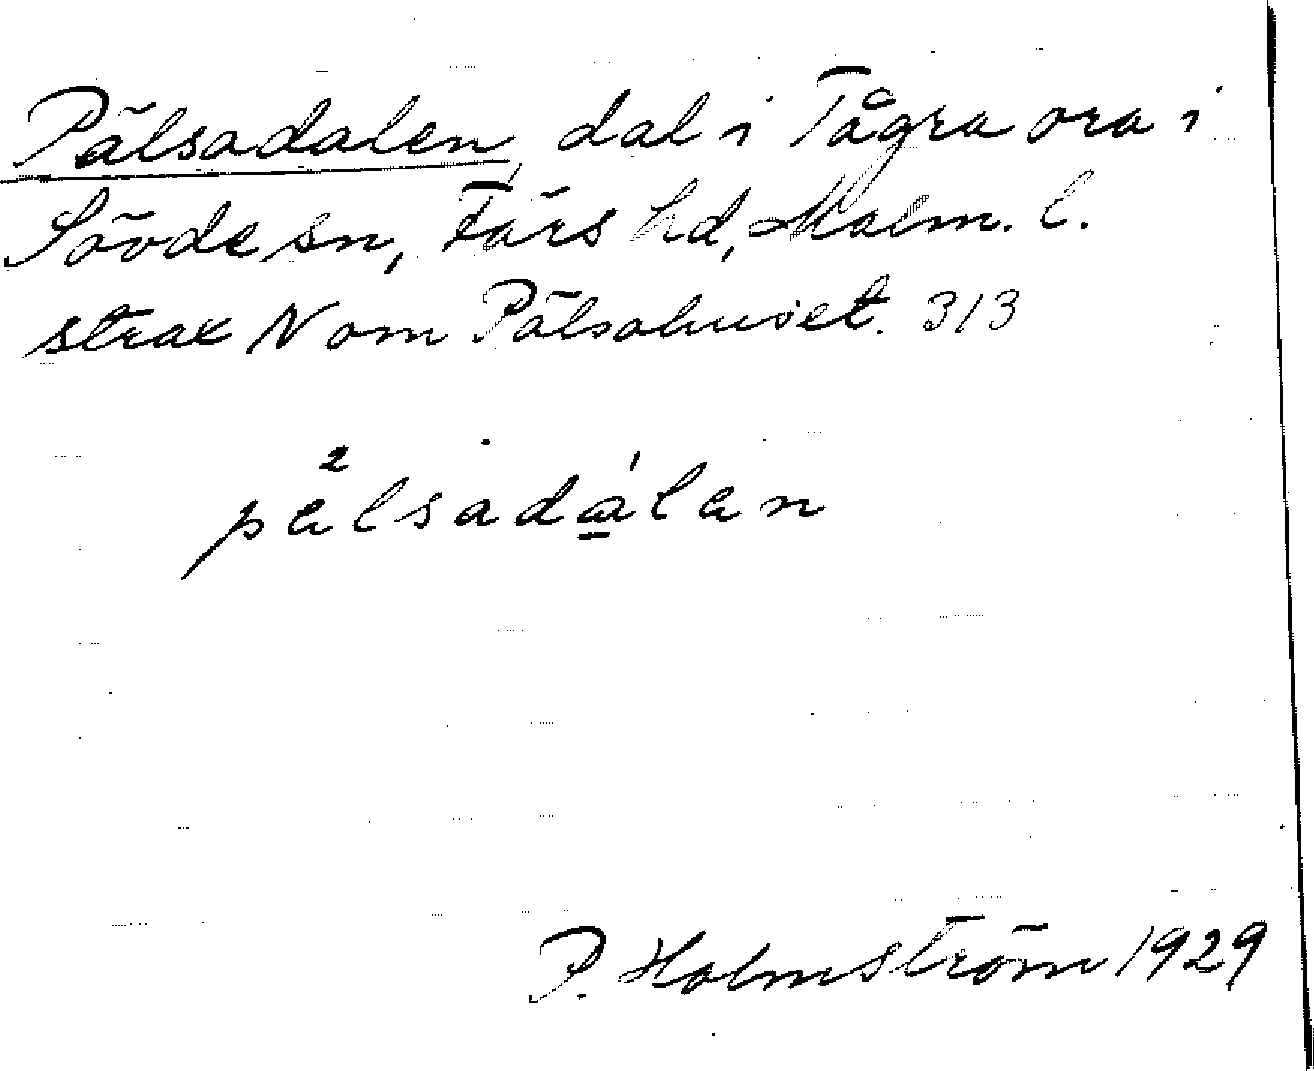 Pälsadalen, dal i Tågra ora i
Sövde sn, Färs hd, Malm. l.
strax N om Pälsahuset. 313
pälsadálan
P. Holmström 1929